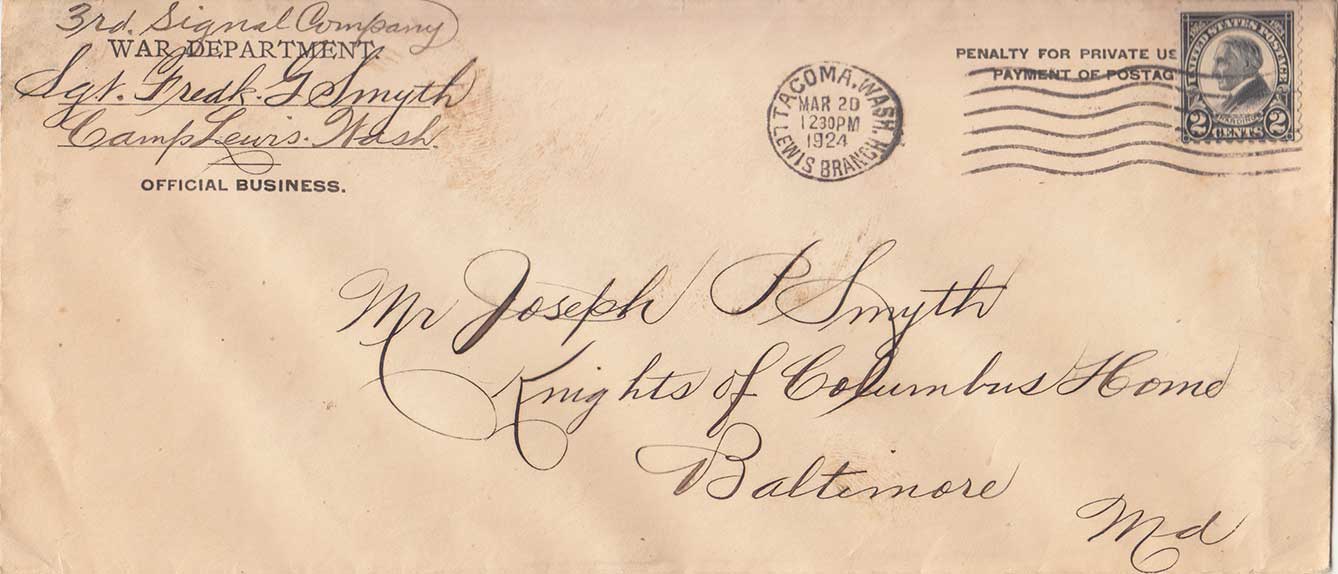 3rd. Signal Company
WAR DEPARTMENT.
Sgt. Fredk. G Smyth
Camp Lewis. Wash.
OFFICIAL BUSINESS.
TACOMA, WASH.
MAR 20
1230PM
1924
LEWIS BRANCH
PENALTY FOR PRIVATE US
PAYMENT OF POSTAG
UNITED STATES POSTAGE
HARDING
2 CENTS 2
Mr Joseph P Smyth
Knights of Columbus Home
Baltimore
Md